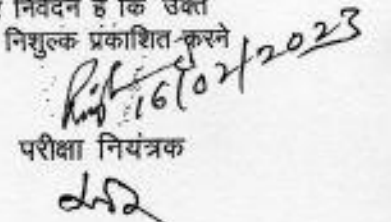 निवेदन है कि उक्त
निशुल्क प्रकाशित करने
16/02/2023
परीक्षा नियंत्रक